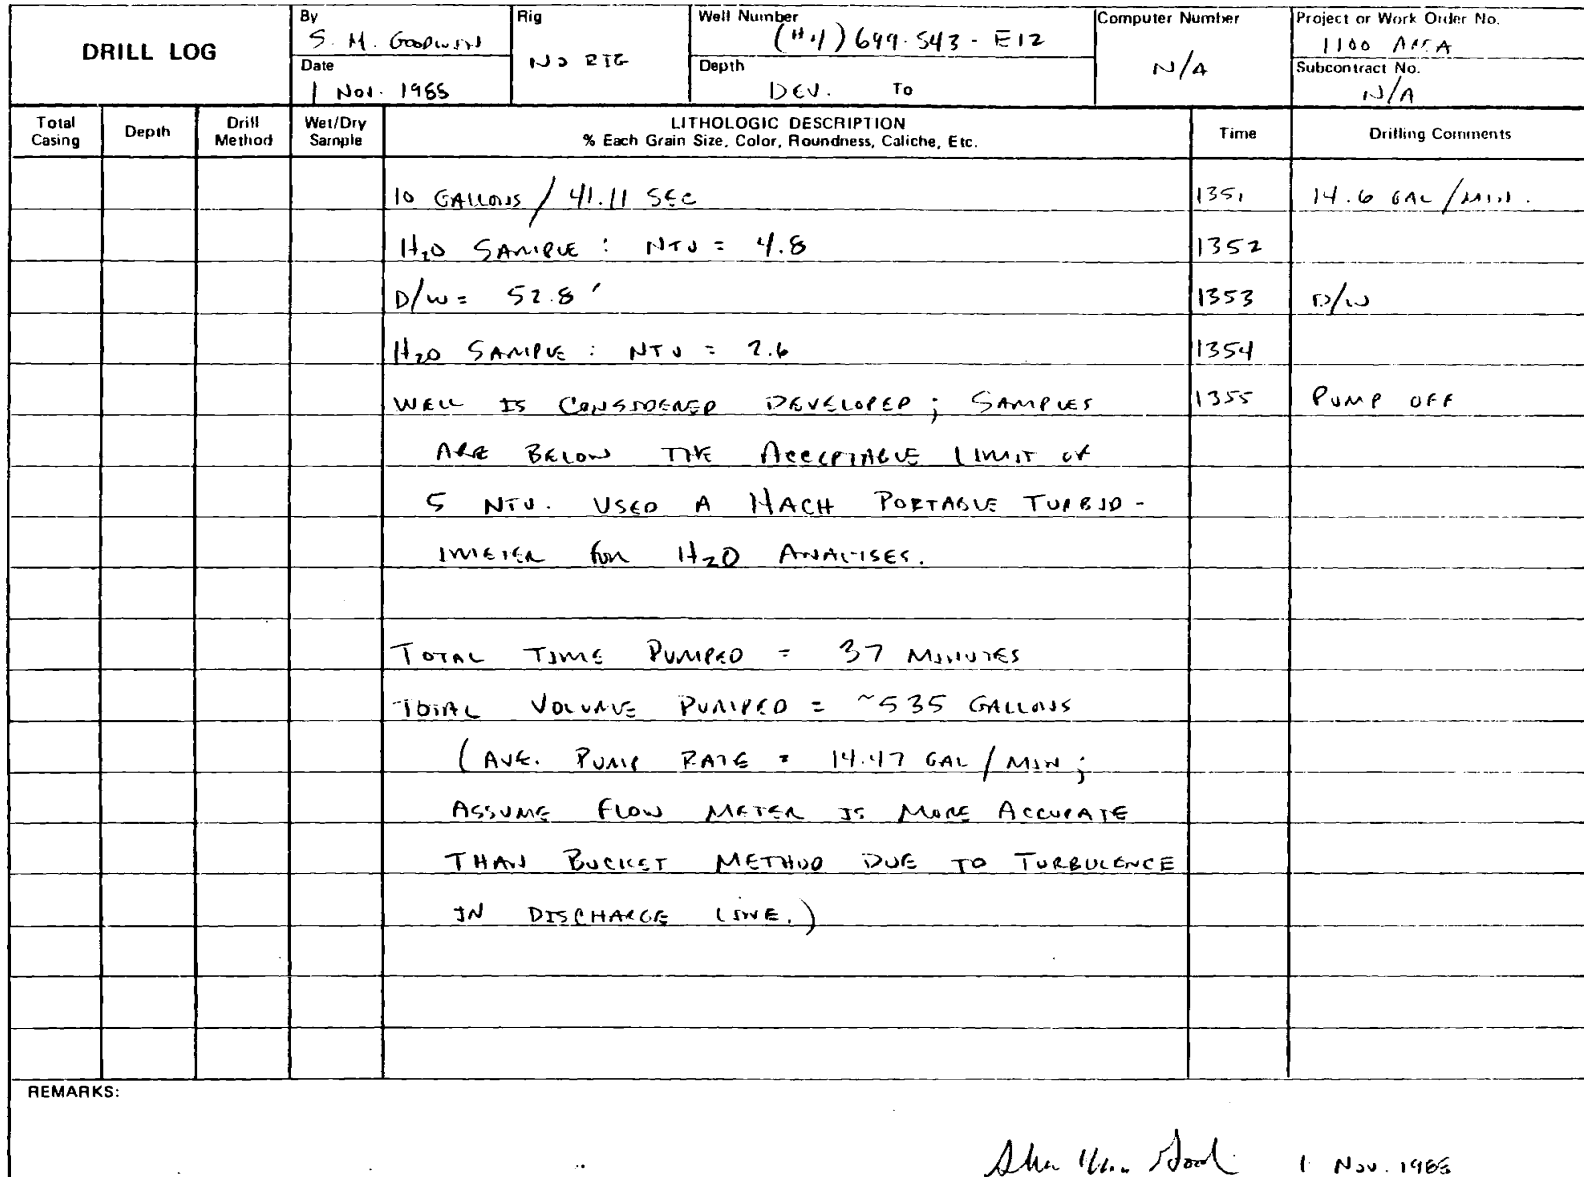 DRILL LOG
By
S. M. GOODWIN
Rig
NO RIG
Well Number
699-S43-E12
Computer Number
N/A
Project or Work Order No.
1100 AREA
Date
1 Nov. 1988
Depth
DEV. To
Subcontract No.
N/A
Total Casing
Depth
Drill Method
Wet/Dry Sample
LITHOLOGIC DESCRIPTION
% Each Grain Size, Color, Roundness, Caliche, Etc.
Time
Drilling Comments
10 GALLONS / 41.11 SEC 1351 14.6 GAL/MIN.
H2O SAMPLE : NTU = 4.8 1352
D/W = 52.8' 1353 D/W
H2O SAMPLE : NTU = 2.6 1354
WELL IS CONSIDERED DEVELOPED; SAMPLES 1355 PUMP OFF
ARE BELOW THE ACCEPTABLE LIMIT OF
5 NTU. USED A HACH PORTABLE TURBID-
IMETER for H2O ANALYSES.
TOTAL TIME PUMPED = 37 MINUTES
TOTAL VOLUME PUMPED = ~535 GALLONS
(AVE. PUMP RATE = 14.47 GAL/MIN;
ASSUME FLOW METER IS MORE ACCURATE
THAN BUCKET METHOD DUE TO TURBULENCE
IN DISCHARGE LINE.)
REMARKS:
1 Nov. 1988